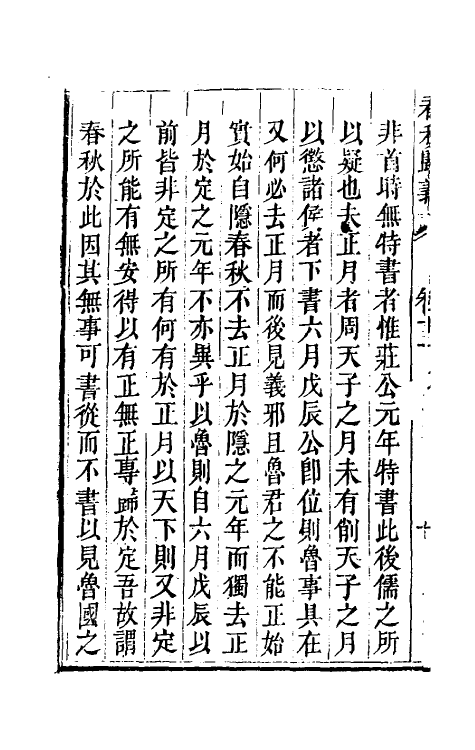 非首時無特書者惟莊公元年特書此後儒之所
以疑也夫正月者周天子之月未有削天子之月
以懲諸侯者下書六月戊辰公卽位則魯事具在
又何必去正月而後見義邪且魯君之不能正始
實始自隱春秋不去正月於隱之元年而獨去正
月於定之元年不亦異乎以魯則自六月戊辰以
前皆非定之所有何有於正月以天下則又非定
之所能有無安得以有正無正專歸於定吾故謂
春秋於此因其無事可書從而不書以見魯國之